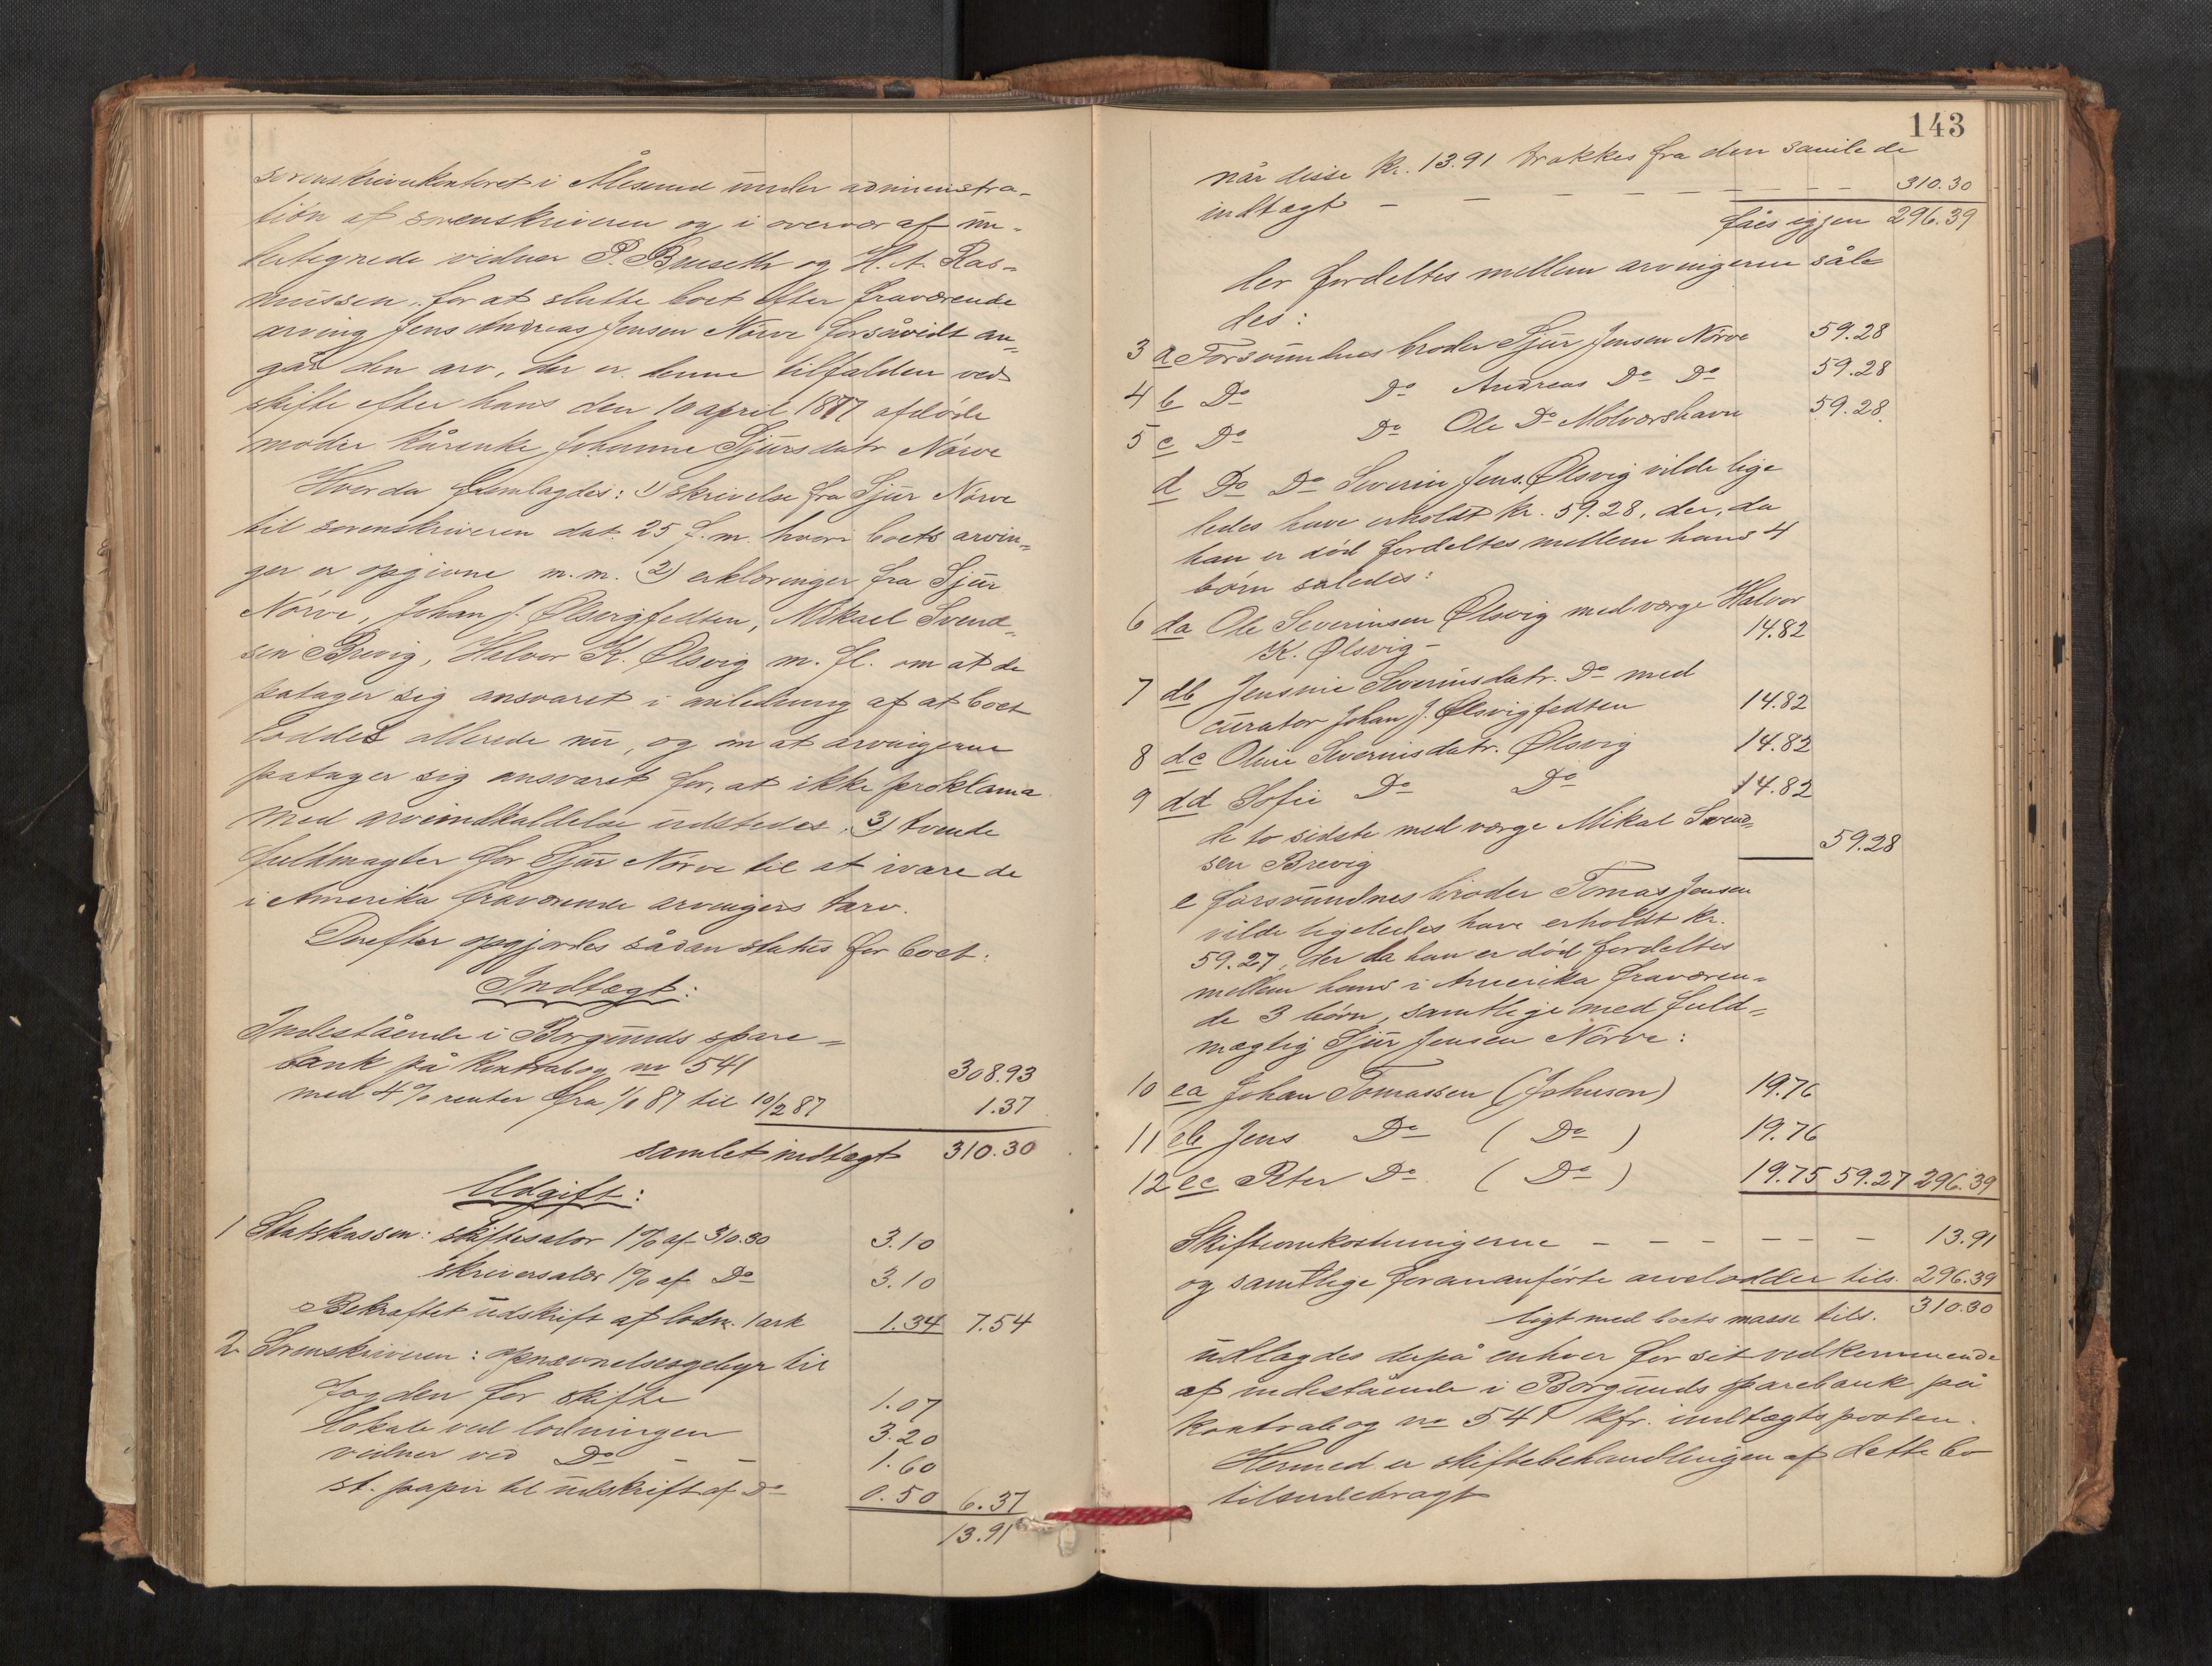 sorenskriverkontoret i Ålesund under administra-
tion af sorenskriveren og i overvær af un-
dertegnede vidner P. Bruseth og H. A. Ras-
mussen, for at slutte boet efter fraværende
arving Jens Andreas Jensen Nørve forsåvidt an-
går den arv, der er denne tilfalden ved
skifte efter hans den 10 april 1877 afdøde
moder kårenke Johanne Sjursdatr Nørve
Hvorda fremlagdes: 1) skrivelse fra Sjur Nørve
til sorenskriveren dat. 25 f. m. hvori boets arvin-
ger er opgivne m. m. 2) erklæringer fra Sjur
Nørve, Johan J. Ølsvigfedten, Mikael Svend-
sen Brevig, Helvor K. Ølsvig m. fl. om at de
patager sig ansvaret i anledning af at boet
loddes allerede nu, og om at arvingerne
patager sig ansvaret for, at ikke proklama
med arveindkaldelse udstedes, 3) tvende
fuldmagter for Sjur Nørve til at ivare de
i Amerika fraværende arvingers tarv.
Derefter opgjordes sådan status for boet:
Indtægt:
Indestående i Borgunds spare-
bank på kontrabog no 541 308.93
med 4% renter fra 1/1 87 til 10/2 87 1.37
samlet indtægt 310.30
Udgift:
1 Statskassen: skiftesalær 1% af 310.30 3.10
skriversalær 1% af Do 3.10
Bekræftet udskrift af lodn. 1 ark 1.34 7.54
2 Sorenskriveren: opnævnelsesgebyr til
fogden for skifte 1.07
Lokale ved lodningen 3.20
vidner ved Do – – 1.60
st. papir til udskrift af Do 0.50 6.37
13.91
143
når disse kr. 13.91 trækkes fra den samlede
indtægt – – – – – – – – 310.30
fåes igjen 296.39
der fordeltes mellem arvingerne såle
des:
3 a Forsvundnes broder Sjur Jensen Nørve 59.28
4 b Do Do Andreas Do Do 59.28
5 c Do Do Ole Do Molværshavn 59.28
d Do Do Severin Jens. Ølsvig vilde lige
ledes have erholdt kr. 59.28, der, da
han er død fordeltes mellem hans 4
børn saledes:
6 da Ole Severinsen Ølsvig med værge Halvor
K. Ølsvig – 14.82
7 db Jensine Severinsdatr. Do med
curator Johan J. Ølsvigfedten 14.82
8 dc Oline Severinsdatr. Ølsvig 14.82
9 dd Sofie Do Do 14.82
de to sidste med værge Mikal Svend-
sen Brevig 59.28
e forsvundnes broder Tomas Jensen
vilde ligeledes have erholdt kr.
59.27, der da han er død fordeltes
mellem hans i Amerika fraværen-
de 3 børn, samtlige med fuld-
mægtig Sjur Jensen Nørve:
10 ea Johan Tomassen (Johnson) 19.76
11 eb Jens Do ( Do ) 19.76
12 ec Peter Do ( Do ) 19.75 59.27 296.39
Skifteomkostningerne – – – – – – 13.91
og samtlige foranførte arvelodder tils. 296.39
ligt med boets masse tils. 310.30
udlagdes derpå enhver for sit vedkommende
af indestående i Borgunds sparebank på
kontrabog no 541 kfr. indtægtsposten.
Hermed er skiftebehandlingen af dette bo
tilendebragt